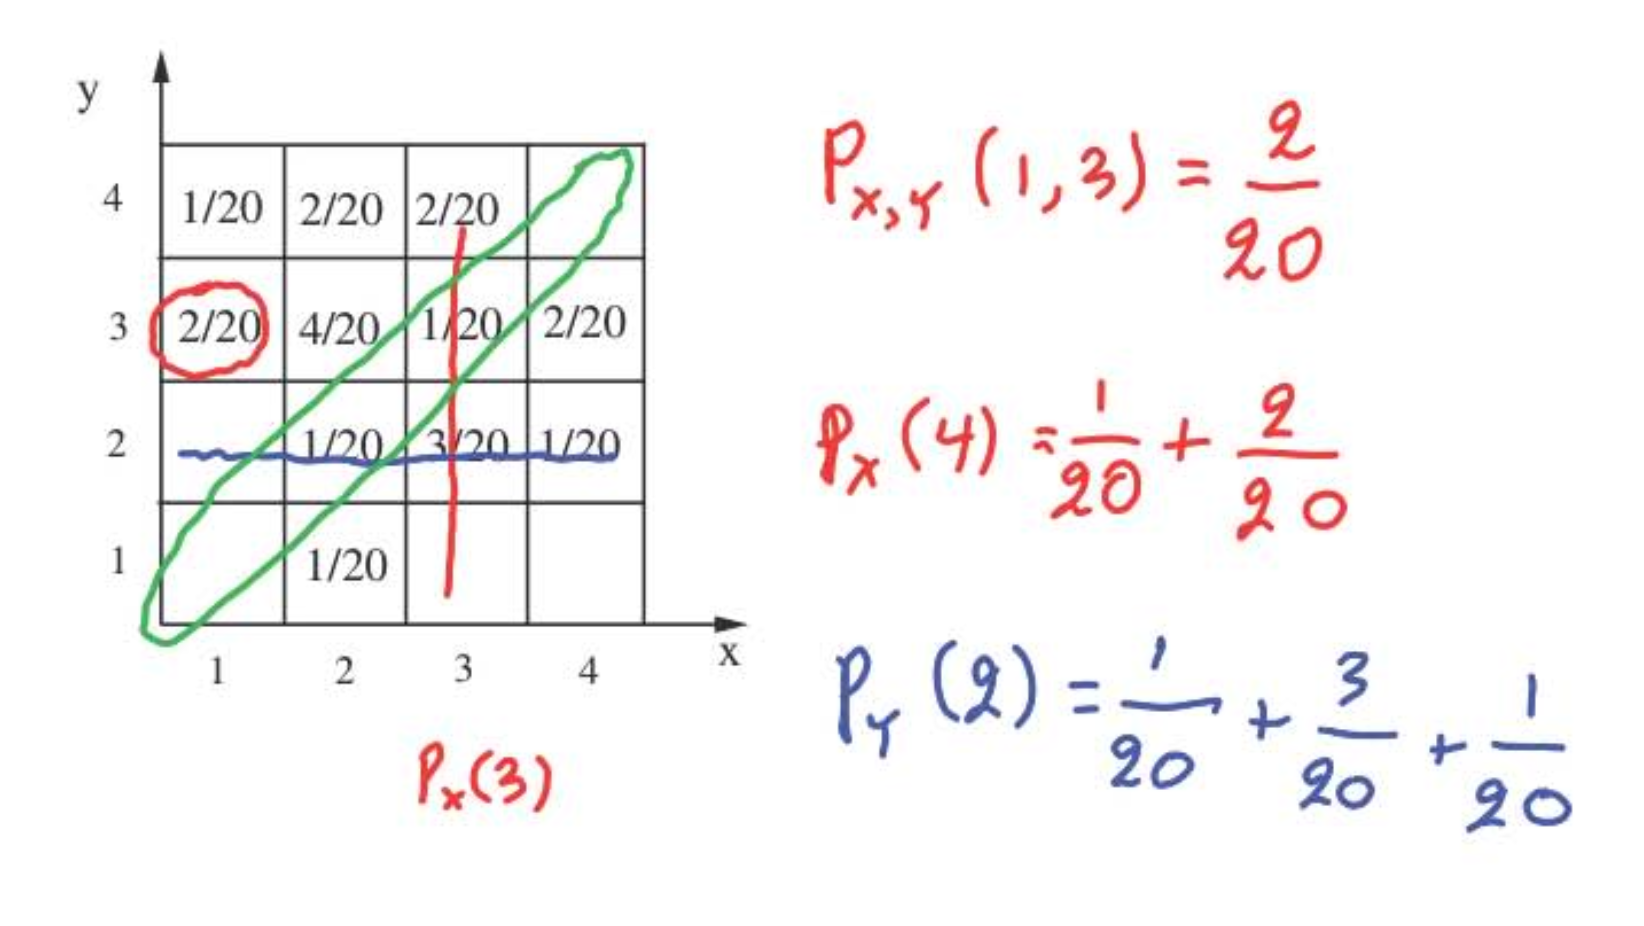 y
4 1/20 2/20 2/20
3 2/20 4/20 1/20 2/20
2 1/20 3/20 1/20
1 1/20
1 2 3 4 x
Px(3)
Px,Y (1,3) = 2/20
Px (4) = 1/20 + 2/20
PY (2) = 1/20 + 3/20 + 1/20